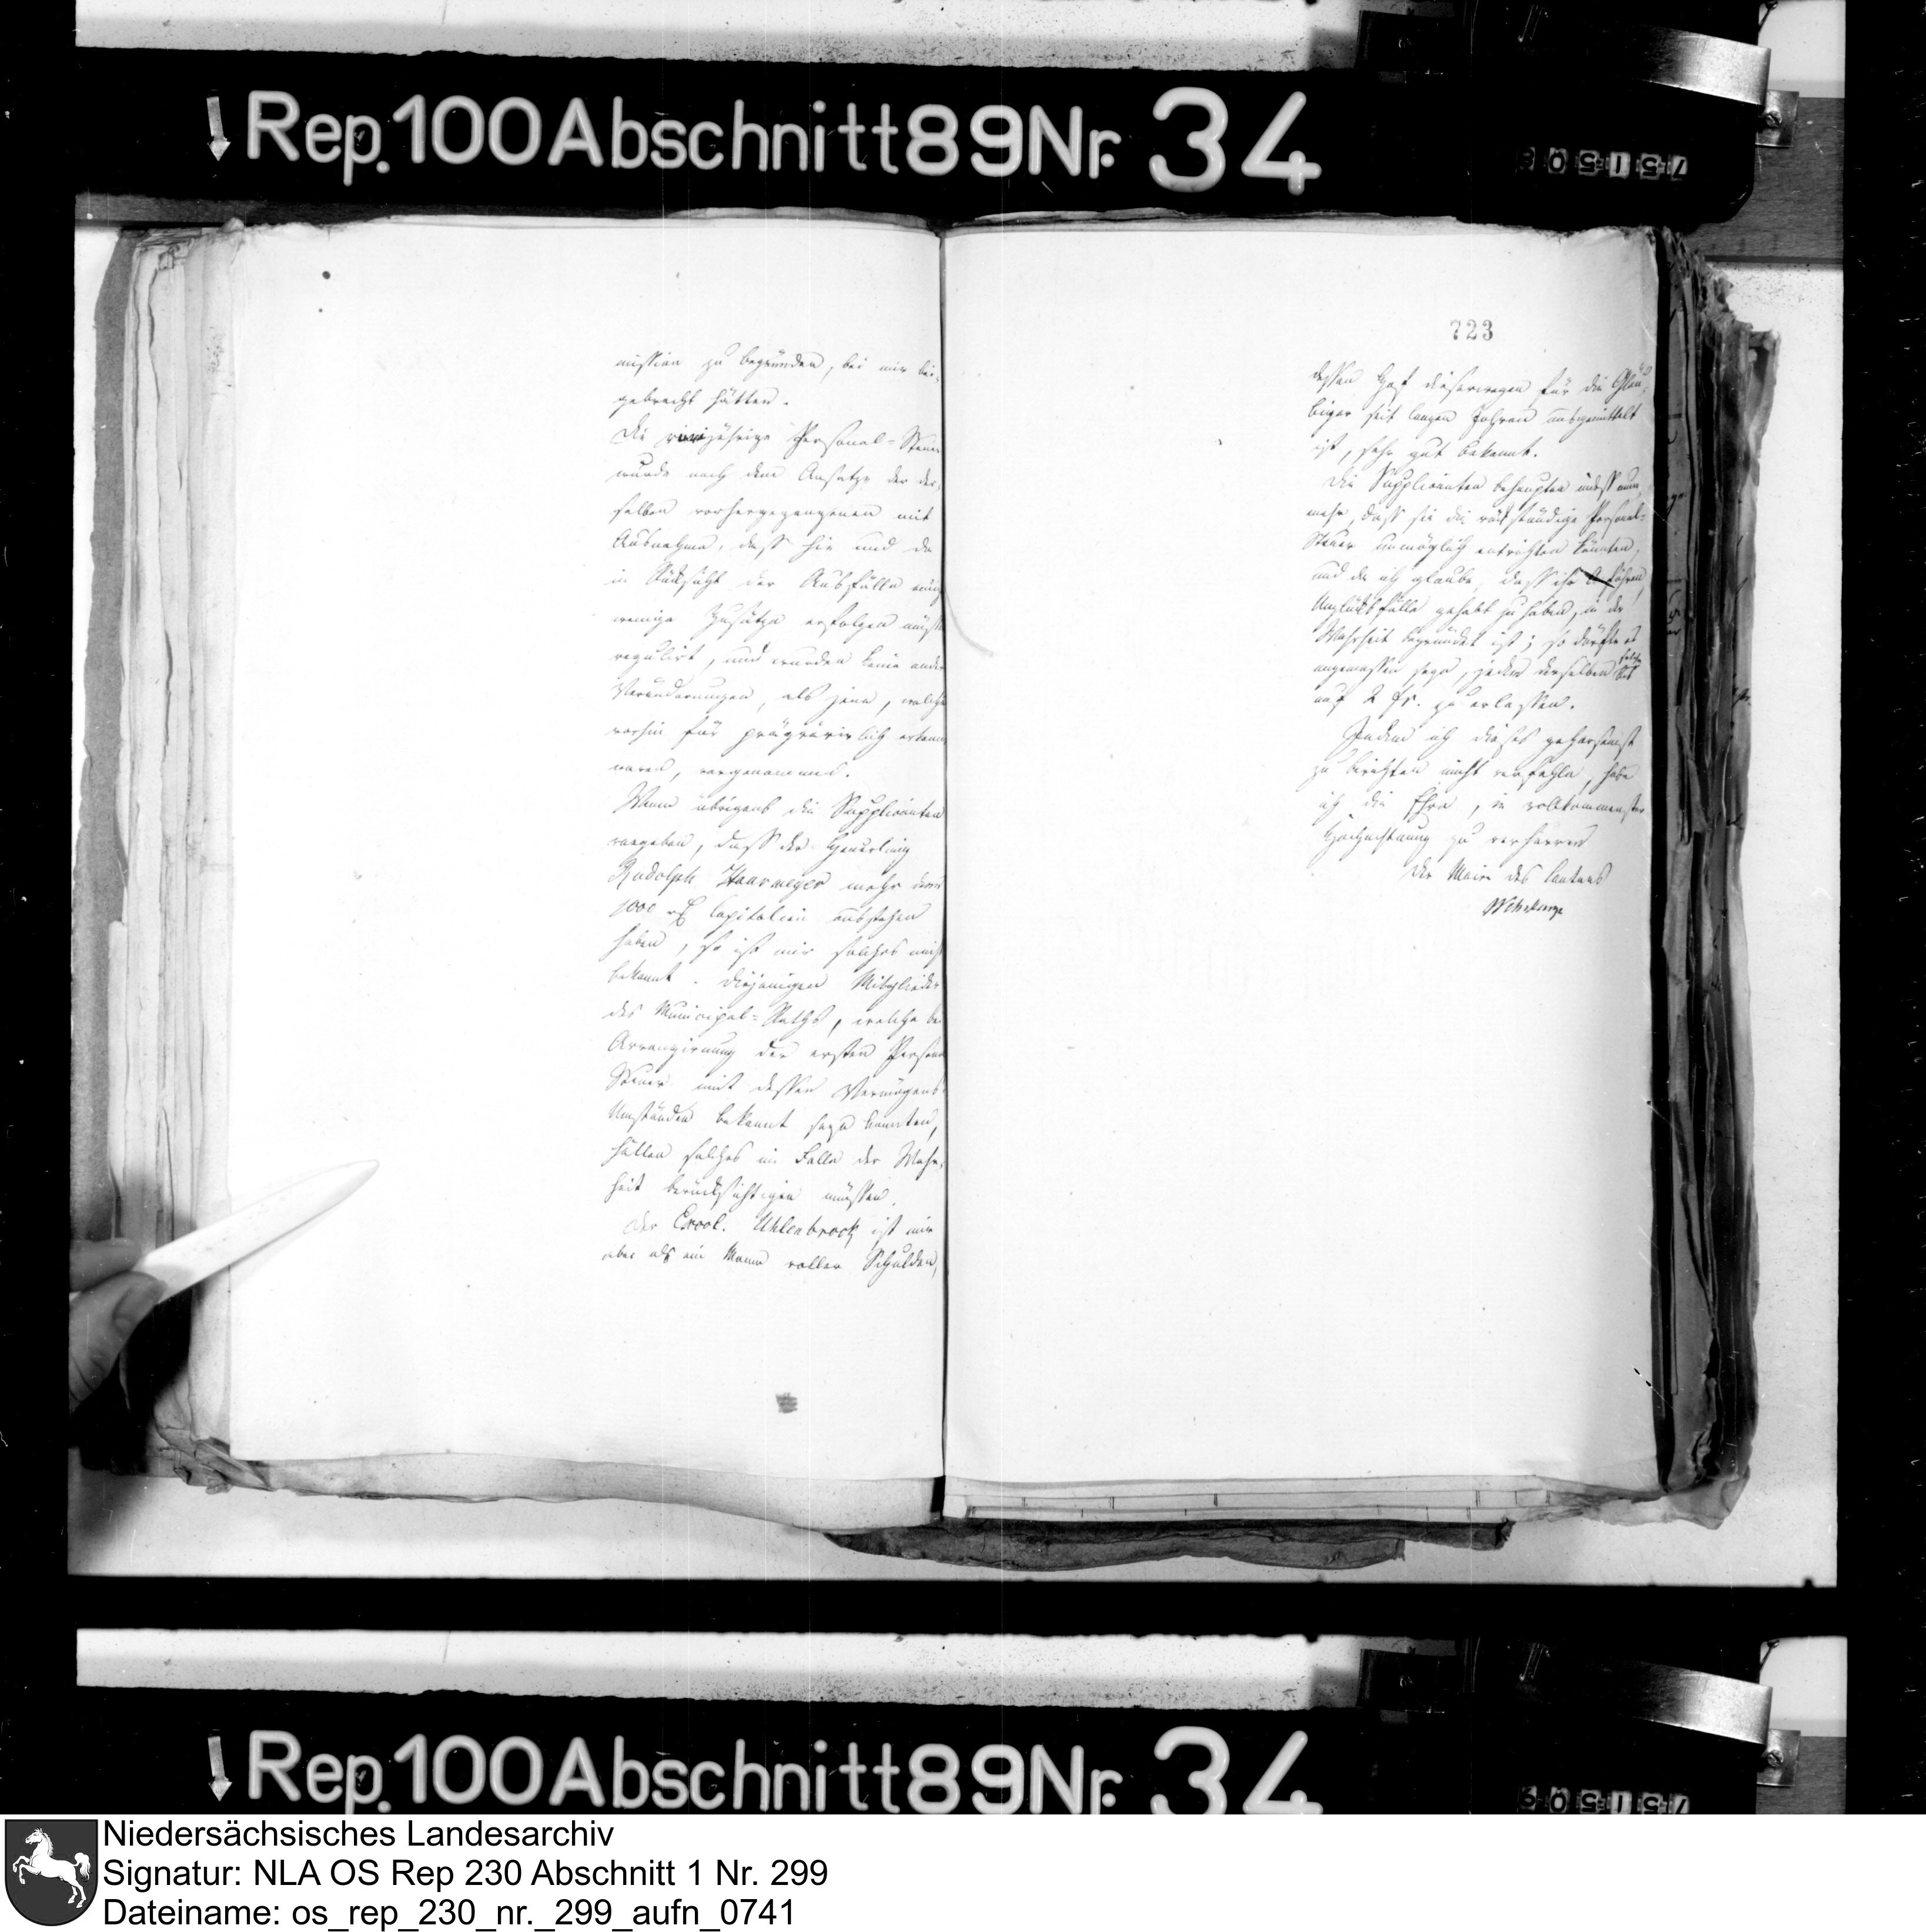 ↓ Rep. 100 Abschnitt 89 Nr. 34
mission zu begründen, bei mir bei-
gebracht hätten.
Die vorjährige Personal-Steuer
wurde nach dem Ansatze der der-
selben vorhergegangenen mit
Ausnahme, daß hie und da
in Rücksicht der Ausfälle einige
wenige Zusätze erfolgen mußten
regulirt, und wurden keine andere
Veränderungen, als jene, welche
vorhin für prägravirlich erkannt
waren, vorgenommen.
Wenn übrigens die Supplicanten
vorgeben, daß der Heuerling
Rudolph Haarmeyer mehr denn
1000 rt Capitalien ausstehen
haben, so ist mir solches nicht
bekannt. Diejenigen Mitglieder
des Municipal-Raths, welche bei
Arrangirung der ersten Personal
Steuer mit dessen Vermögens-
Umständen bekannt seyn konnten,
hätten solches im Falle der Wahr-
heit berücksichtigen müssen.
Der Col. Uhlenbrock ist mir
aber als ein Mann voller Schulden,
723
dessen Hof dieserwegen für die Gläu-
biger seit langen Jahren ausgemittelt
ist, sehr gut bekannt.
Die Supplicanten behaupten indeß nun
mehr, daß sie die rückständige Personal-
Steuer unmöglich entrichten könnten,
und da ich glaube, daß ihr Anführen,
Unglücksfälle gehabt zu haben, in der
Wahrheit begründet ist; so dürfte es
angemessen seyn, jedem derselben solche
bis
auf 2 fr. zu erlassen.
Indem ich dieses gehorsamst
zu berichten nicht verfehle, habe
ich die Ehre, in vollkommenster
Hochachtung zu verharren
Der Maire des Cantons
Niedersächsisches Landesarchiv
Signatur: NLA OS Rep 230 Abschnitt 1 Nr. 299
Dateiname: os_rep_230_nr._299_aufn_0741